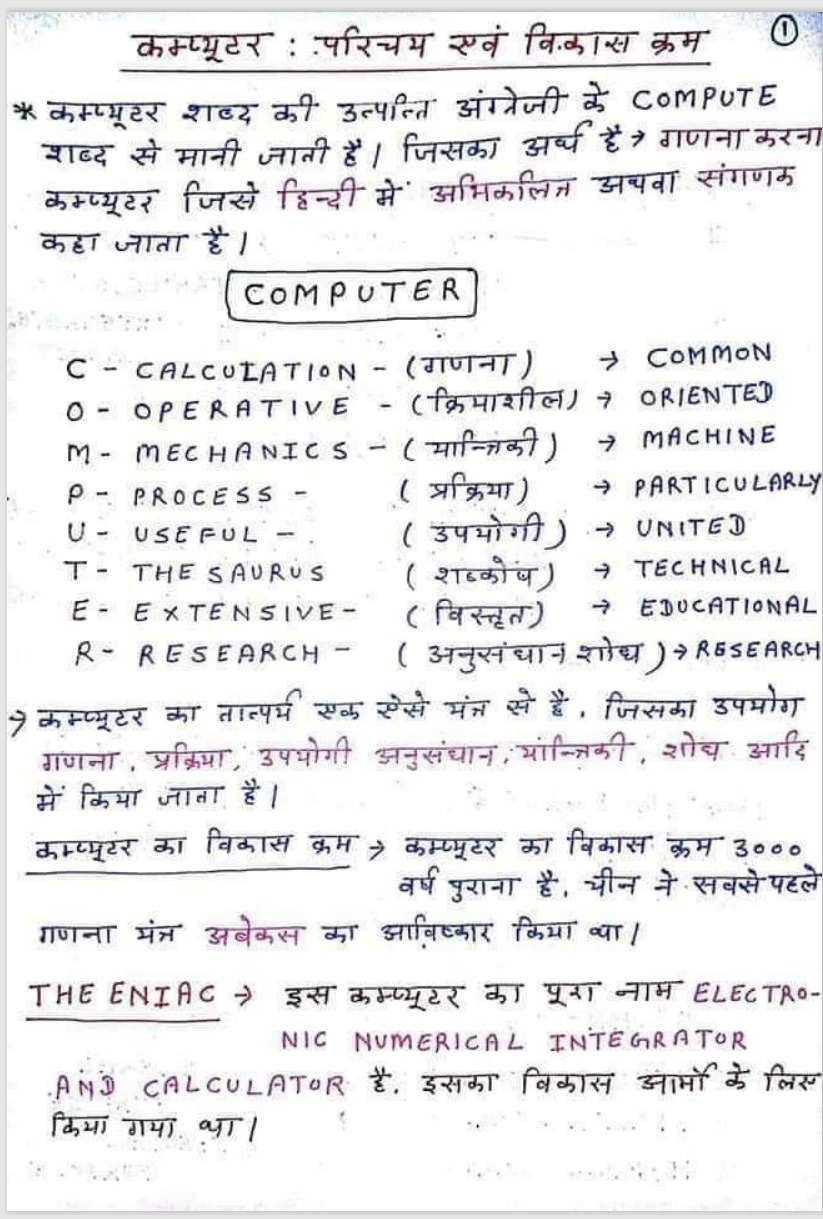 कम्प्यूटर : परिचय एवं विकास क्रम
1
* कम्प्यूटर शब्द की उत्पत्ति अंग्रेजी के COMPUTE
शब्द से मानी जाती है। जिसका अर्थ है → गणना करना
कम्प्यूटर जिसे हिन्दी में अभिकलित्र अथवा संगणक
कहा जाता है।
COMPUTER
C - CALCULATION - (गणना) → COMMON
O - OPERATIVE - (क्रियाशील) → ORIENTED
M - MECHANICS - (यान्त्रिकी) → MACHINE
P - PROCESS - (प्रक्रिया) → PARTICULARLY
U - USEFUL - (उपयोगी) → UNITED
T - THESAURUS (शब्कोष) → TECHNICAL
E - EXTENSIVE - (विस्तृत) → EDUCATIONAL
R - RESEARCH - (अनुसंधान शोध) → RESEARCH
→ कम्प्यूटर का तात्पर्य एक ऐसे यंत्र से है, जिसका उपयोग
गणना, प्रक्रिया, उपयोगी अनुसंधान, यान्त्रिकी, शोध आदि
में किया जाता है।
कम्प्यूटर का विकास क्रम → कम्प्यूटर का विकास क्रम 3000
वर्ष पुराना है, चीन ने सबसे पहले
गणना यंत्र अबेकस का आविष्कार किया था।
THE ENIAC → इस कम्प्यूटर का पूरा नाम ELECTRO-
NIC NUMERICAL INTEGRATOR
AND CALCULATOR है. इसका विकास आर्मी के लिए
किया गया था।